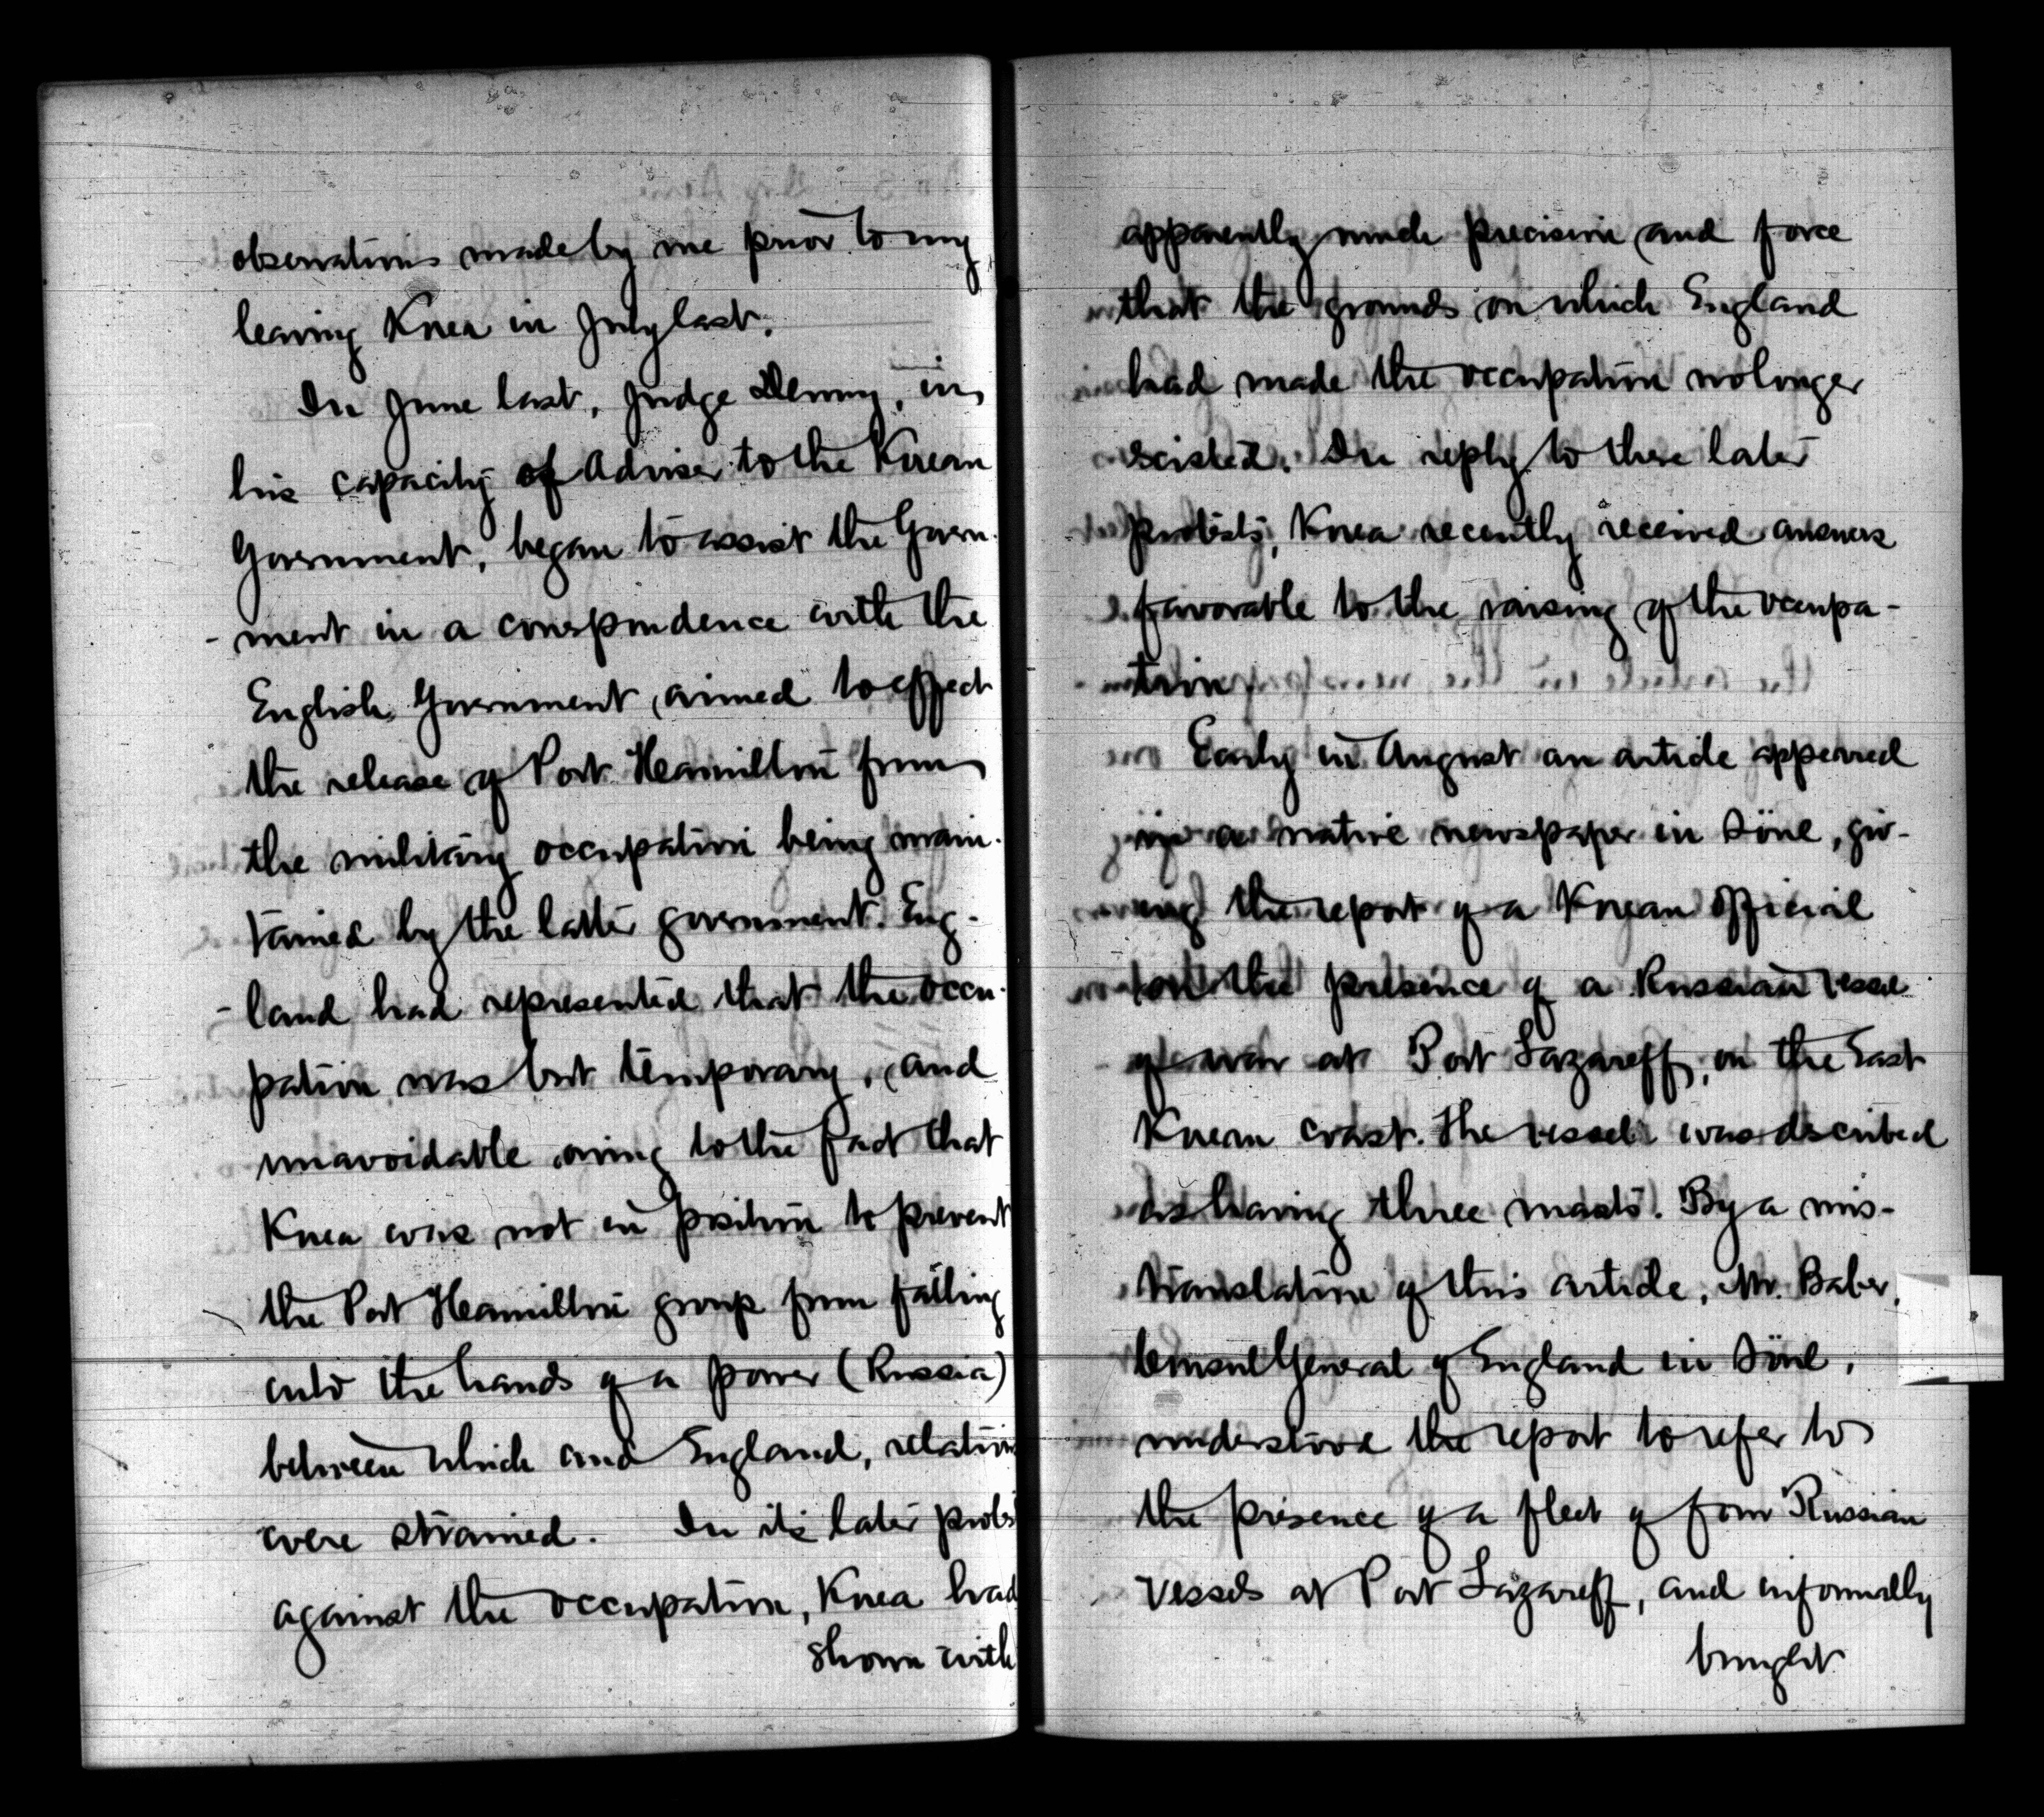 observations made by me prior to my
leaving Korea in July last.
In June last, Judge Denny, in
his capacity of Adviser to the Korean
Government, began to assist the Govern-
-ment in a correspondence with the
English Government, aimed to effect
the release of Port Hamilton from
the military occupation being main-
tained by the latter government. Eng-
-land had represented that the occu-
pation was but temporary, and
unavoidable owing to the fact that
Korea was not in position to prevent
the Port Hamilton group from falling
into the hands of a power (Russia)
between which and England, relations
were strained. In its later protests
against the occupation, Korea had
shown with
apparently much precision and force
that the grounds on which England
had made the occupation no longer
existed. In reply to these later
protests, Korea recently received answers
favorable to the raising of the occupa-
tion
Early in August an article appeared
in a native newspaper in Söul, giv-
ing the report of a Korean official
on the presence of a Russian vessel
of war at Port Lazareff, on the East
Korean coast. The vessel was described
as having three masts. By a mis-
translation of this article, Mr. Baber,
Consul General of England in Söul,
understood the report to refer to
the presence of a fleet of four Russian
vessels at Port Lazareff, and informally
brought